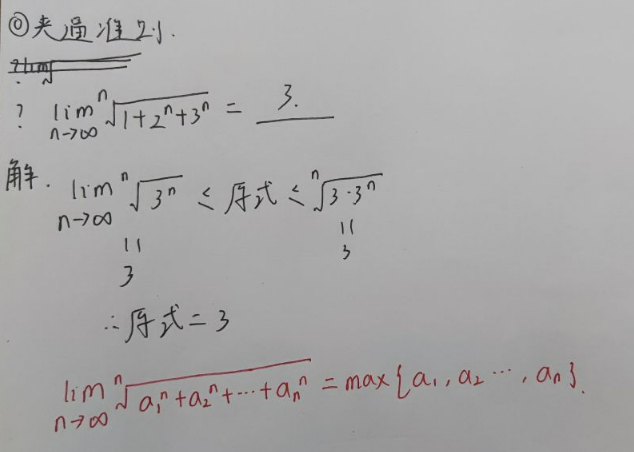 ◎夹逼准则.
? lim n→∞ ⁿ√(1+2ⁿ+3ⁿ) = 3.
解. lim n→∞ ⁿ√(3ⁿ) ≤ 原式 ≤ ⁿ√(3·3ⁿ)
|| ||
3 3
∴原式=3
lim n→∞ ⁿ√(a₁ⁿ+a₂ⁿ+…+aₙⁿ) = max{a₁, a₂ …, aₙ}.